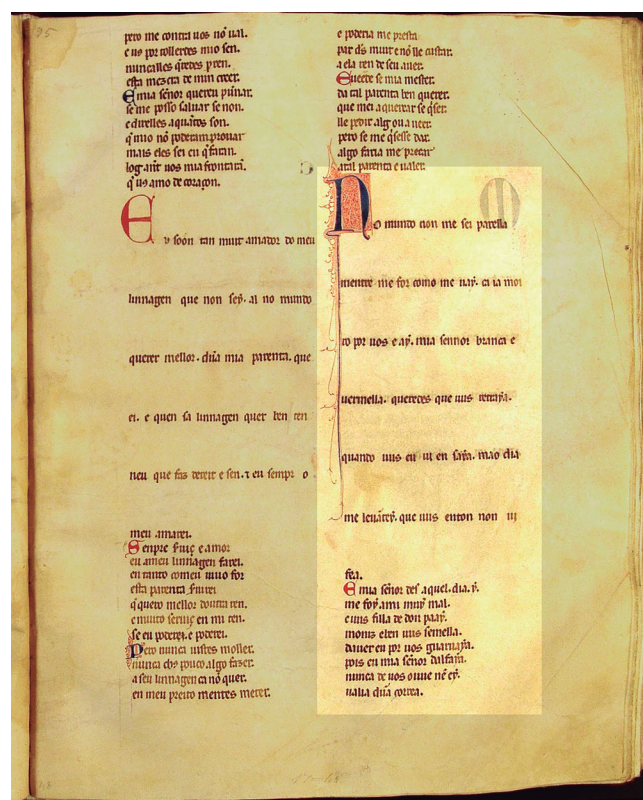 pero me contra uos nõ ual.
e uꝯ por tolledes mio sen.
e mia señor quereu punar.
se me posso saluar se non.
e direlles aquãtos son.
q̃ mio nõ poderam prouar
mais eles sei eu q̃ faran.
q̃ uꝯ amo de coraçon.
Ev soon tan muit amador do meu
linnagen que non seỹ. al no mundo
querer mellor. dũa mia parenta. que
ei. e quen sa linnagen quer ben ten
meu amarei.
Senpre seruiç e amor
eu ameu linnagen farei.
en tanto com eu uiuo for
esta parenta seruirei
q̃ quero mellor doutra ren.
e muito seruiç en mi ten.
se eu poderei. e poderei.
Pero nunca uistes moller.
nunca chꝯ pouco algo fazer.
a seu linnagen ca nõ quer.
en meu preito mentes meter.
e poderia me prestar
par dꝯs muit e nõ lle custar.
a ela ren de seu auer.
Querede se mia mester.
da tal parenta ben querer.
que mei a queixar se q̃ser.
lle pedir alg ou a ueer.
pero se me q̃sesse dar.
algo faria me preçar
atal parenta e ualer.
No mundo non me sei parella
mentre me for como me uaỹ. ca ia moi
ro por uos e aỹ. mia sennor branca e
uermella. queredes que uus retraỹa.
quando uus eu ui en saỹa. mao dia
me leuãteỹ. que uus enton non ui
fea.
E mia señor des aquel. dia. ỹ.
me foỹ ami muỹ mal.
e uus filla de don paaỹ.
moniz e ben uus semella.
dauer eu por uos guaruaỹa.
pois eu mia señor dalfaia.
nunca de uos ouue nẽ eỹ.
ualia dũa correa.